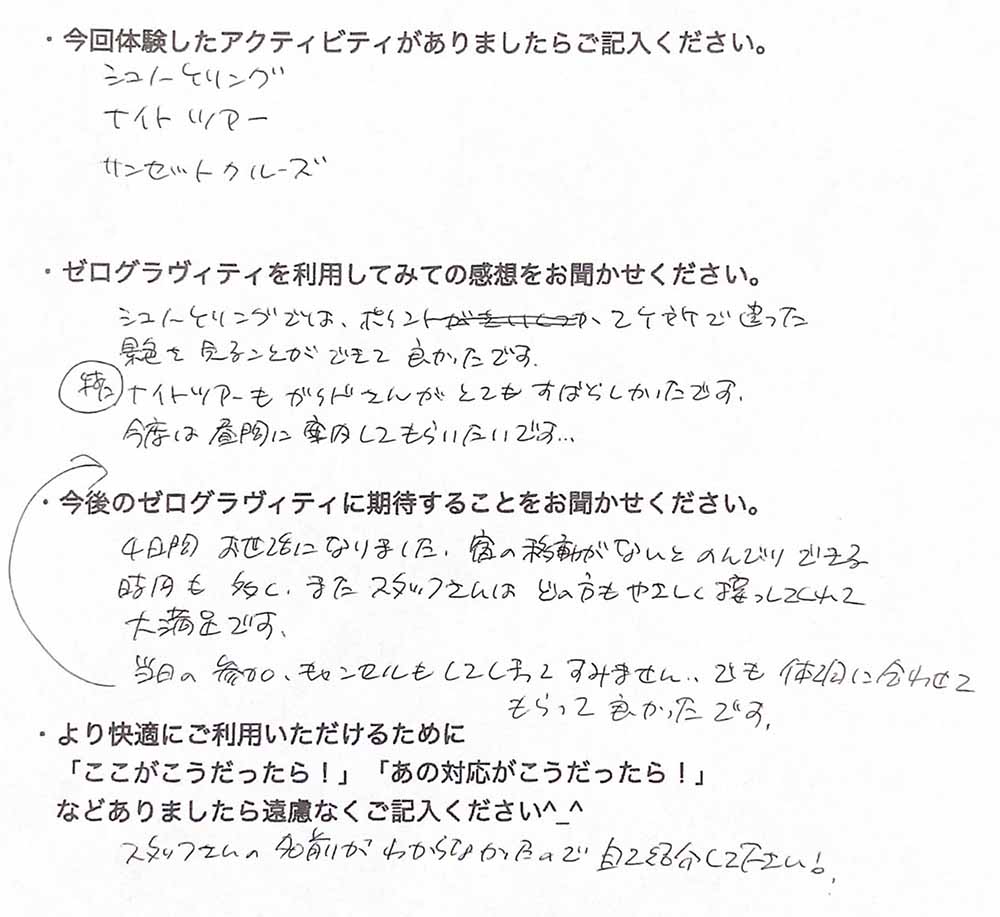 ・今回体験したアクティビティがありましたらご記入ください。
シュノーケリング
ナイトツアー
サンセットクルーズ
・ゼログラヴィティを利用してみての感想をお聞かせください。
シュノーケリングでは、ポイントがきいしつか、2ヶ所で違った
景色を見ることができて良かったです。
特に ナイトツアーもガイドさんがとてもすばらしかったです。
今度は昼間に案内してもらいたいです…
・今後のゼログラヴィティに期待することをお聞かせください。
4日間お世話になりました。宿の移動がないとのんびりできる
時間も多く、またスタッフさんはどの方もやさしく接してくれて
大満足です。
当日の参加、キャンセルもしてしまってすみません.. でも体調に合わせて
もらって良かったです。
・より快適にご利用いただけるために
「ここがこうだったら！」「あの対応がこうだったら！」
などありましたら遠慮なくご記入ください^_^
スタッフさんの名前がわからなかったので自己紹介して下さい!